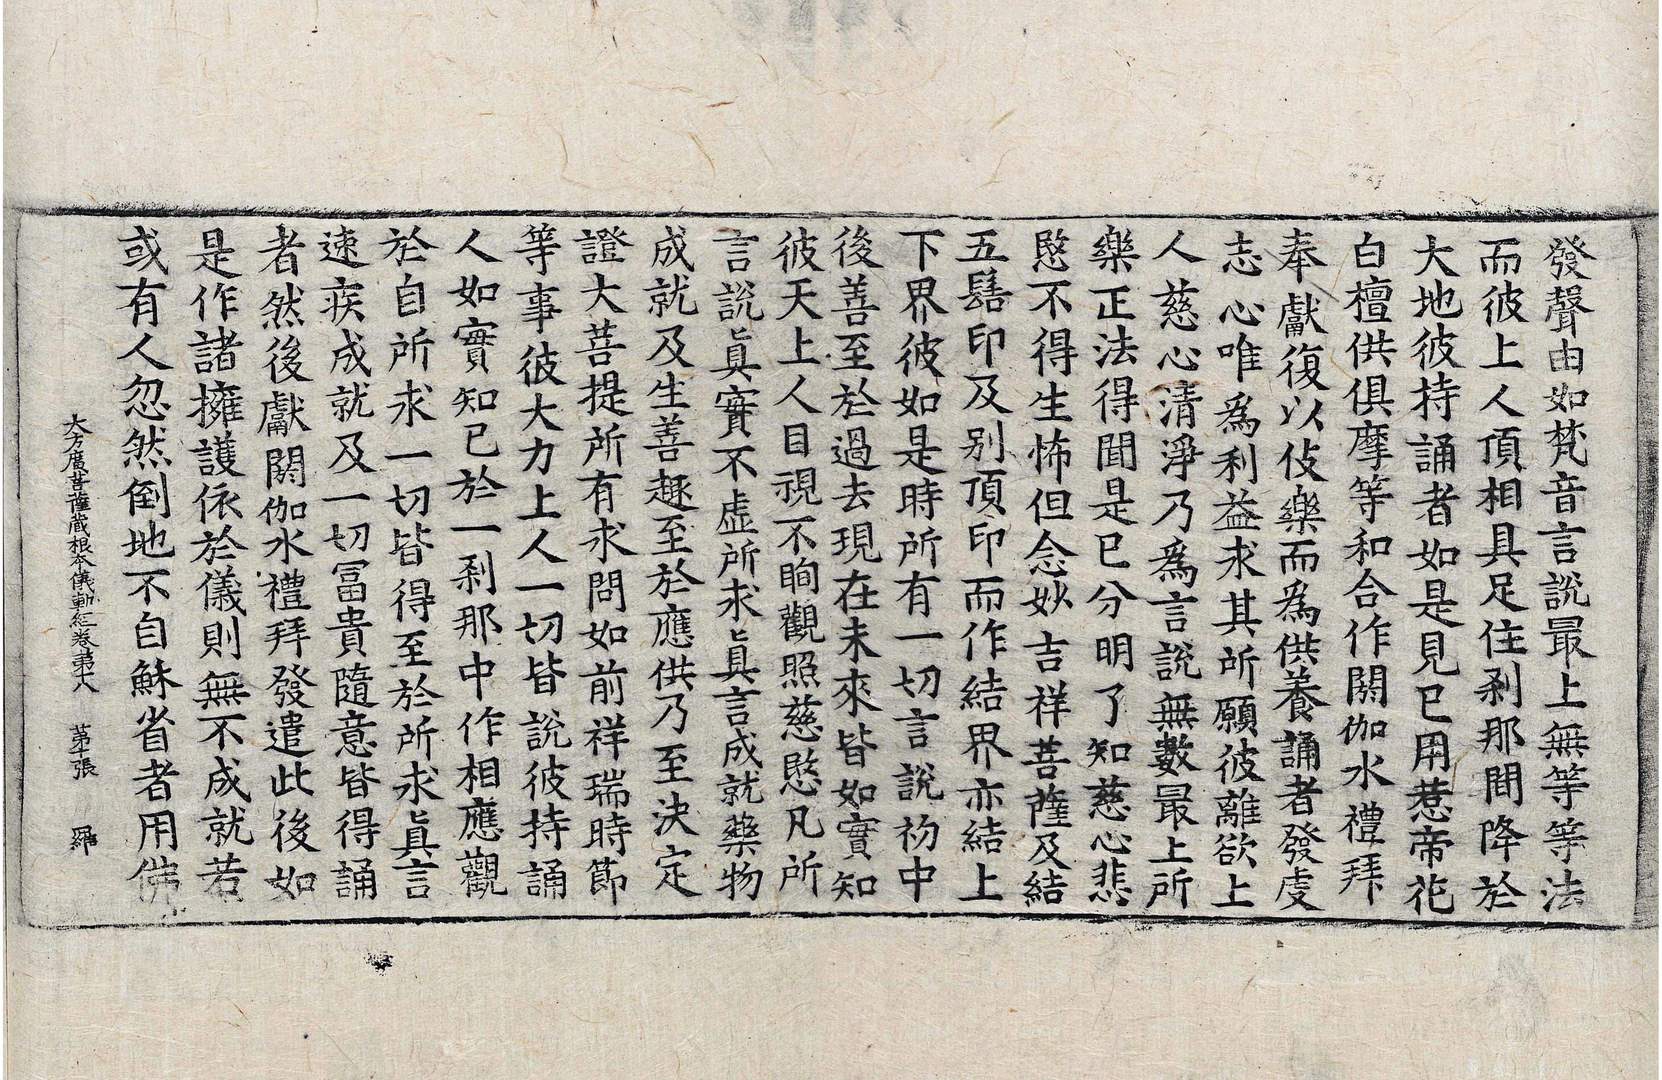 發聲由如梵音言說最上無等等法
而彼上人頂相具足住剎那間降於
大地彼持誦者如是見已用惹帝花
白檀供俱摩等和合作閼伽水禮拜
奉獻復以伎樂而為供養誦者發虔
志心唯為利益求其所願彼離欲上
人慈心清淨乃為言說無數最上所
樂正法得聞是已分明了知慈心悲
愍不得生怖但念妙吉祥菩薩及結
五髻印及別頂印而作結界亦結上
下界彼如是時所有一切言說初中
後善至於過去現在未來皆如實知
彼天上人目視不眴觀照慈愍凡所
言說眞實不虛所求眞言成就藥物
成就及生善趣至於應供乃至決定
證大菩提所有求問如前祥瑞時節
等事彼大力上人一切皆說彼持誦
人如實知已於一剎那中作相應觀
於自所求一切皆得至於所求眞言
速疾成就及一切冨貴隨意皆得誦
者然後獻閼伽水禮拜發遣此後如
是作諸擁護依於儀則無不成就若
或有人忽然倒地不自穌省者用佛
大方廣菩薩藏根本儀軌經卷第六 第十張 羅